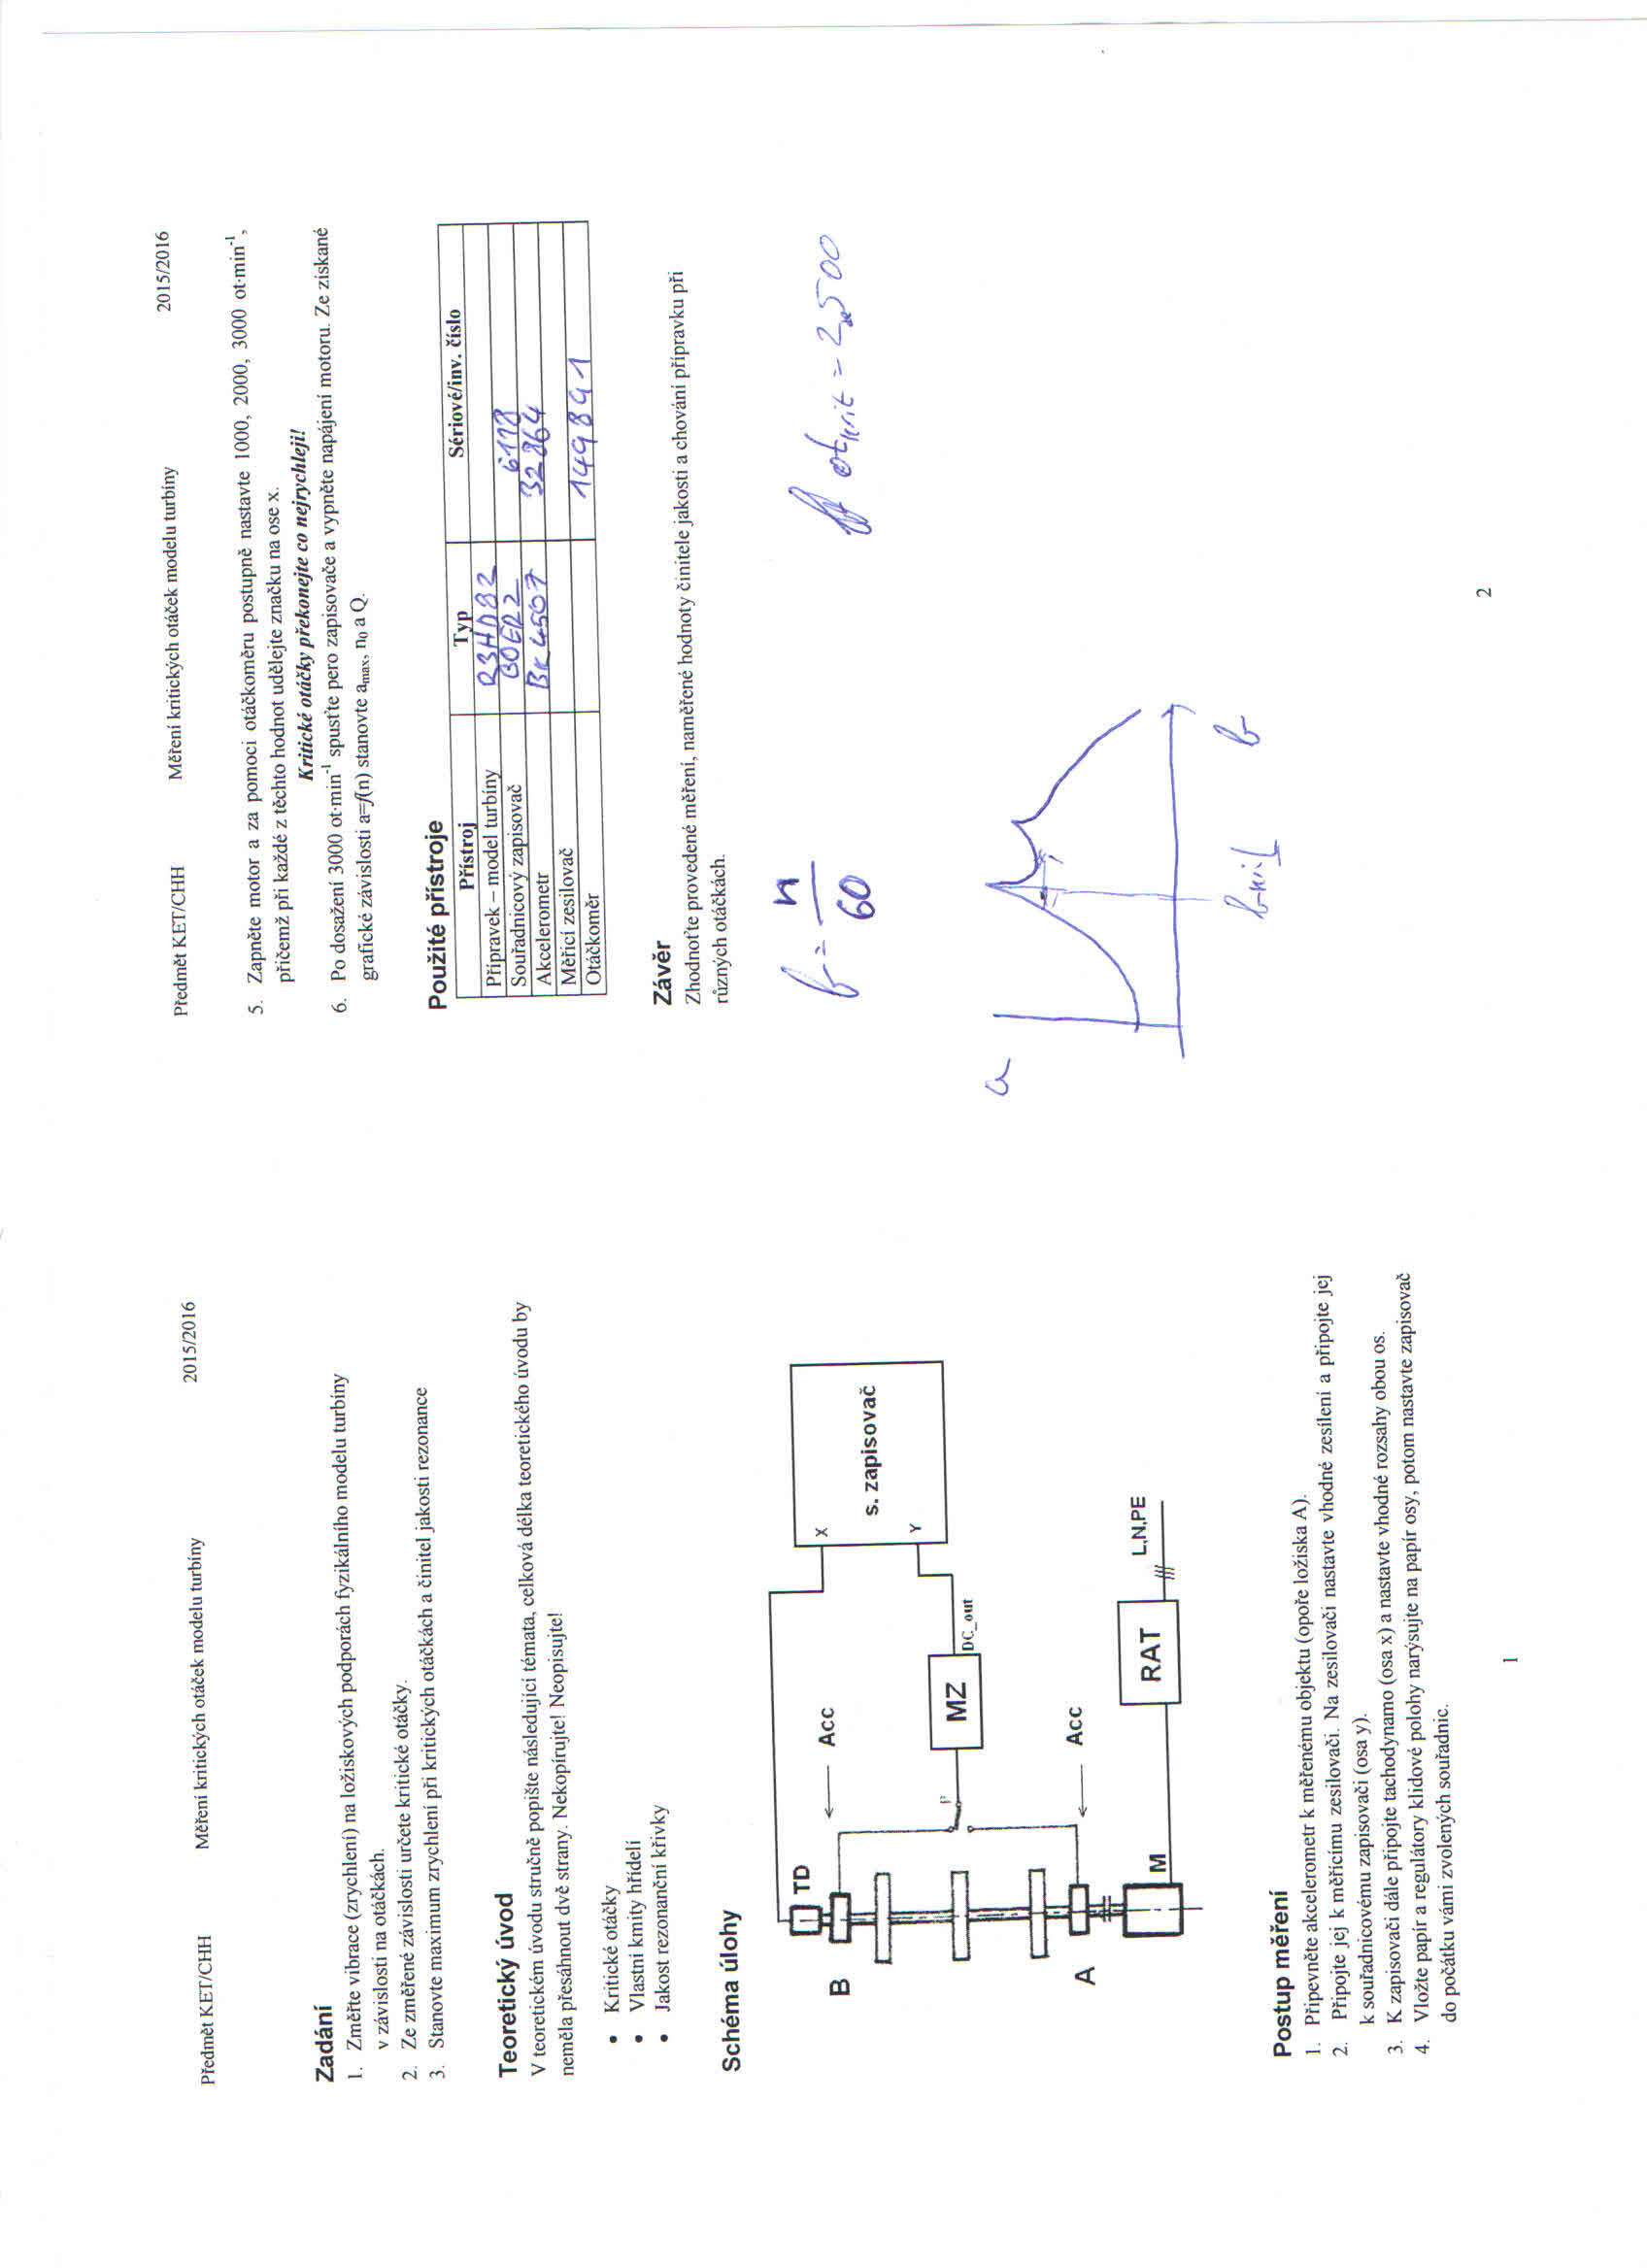 Předmět KET/CHH Měření kritických otáček modelu turbíny 2015/2016
Zadání
1. Změřte vibrace (zrychlení) na ložiskových podporách fyzikálního modelu turbíny
v závislosti na otáčkách.
2. Ze změřené závislosti určete kritické otáčky.
3. Stanovte maximum zrychlení při kritických otáčkách a činitel jakosti rezonance
Teoretický úvod
V teoretickém úvodu stručně popište následující témata, celková délka teoretického úvodu by
neměla přesáhnout dvě strany. Nekopírujte! Neopisujte!
• Kritické otáčky
• Vlastní kmity hřídelí
• Jakost rezonanční křivky
Schéma úlohy
TD
B
Acc
X
s. zapisovač
Y
MZ
DC_out
P
Acc
A
M
RAT
L,N,PE
Postup měření
1. Připevněte akcelerometr k měřenému objektu (opoře ložiska A).
2. Připojte jej k měřícímu zesilovači. Na zesilovači nastavte vhodné zesílení a připojte jej
k souřadnicovému zapisovači (osa y).
3. K zapisovači dále připojte tachodynamo (osa x) a nastavte vhodné rozsahy obou os.
4. Vložte papír a regulátory klidové polohy narýsujte na papír osy, potom nastavte zapisovač
do počátku vámi zvolených souřadnic.
1
Předmět KET/CHH Měření kritických otáček modelu turbíny 2015/2016
5. Zapněte motor a za pomoci otáčkoměru postupně nastavte 1000, 2000, 3000 ot·min⁻¹,
přičemž při každé z těchto hodnot udělejte značku na ose x.
Kritické otáčky překonejte co nejrychleji!
6. Po dosažení 3000 ot·min⁻¹ spusťte pero zapisovače a vypněte napájení motoru. Ze získané
grafické závislosti a=f(n) stanovte aₘₐₓ, n₀ a Q.
Použité přístroje
Přístroj Typ Sériové/inv. číslo
Přípravek – model turbíny
Souřadnicový zapisovač 6178
Akcelerometr BK 4507 32864
Měřicí zesilovač
Otáčkoměr 149891
Závěr
Zhodnoťte provedené měření, naměřené hodnoty činitele jakosti a chování přípravku při
různých otáčkách.
f = n/60
ot krit = 2500
a
f krit f
2